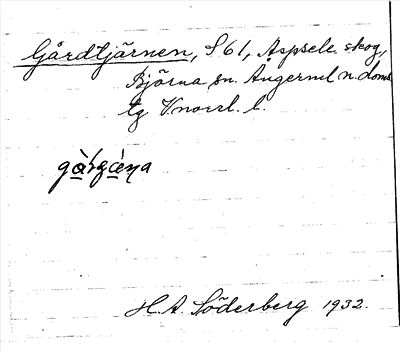 Gårdtjärnen, S 61, Aspsele skog,
Björna sn. Ångerml. n. doms
tg V.norrl. l.
H.A. Söderberg 1932.